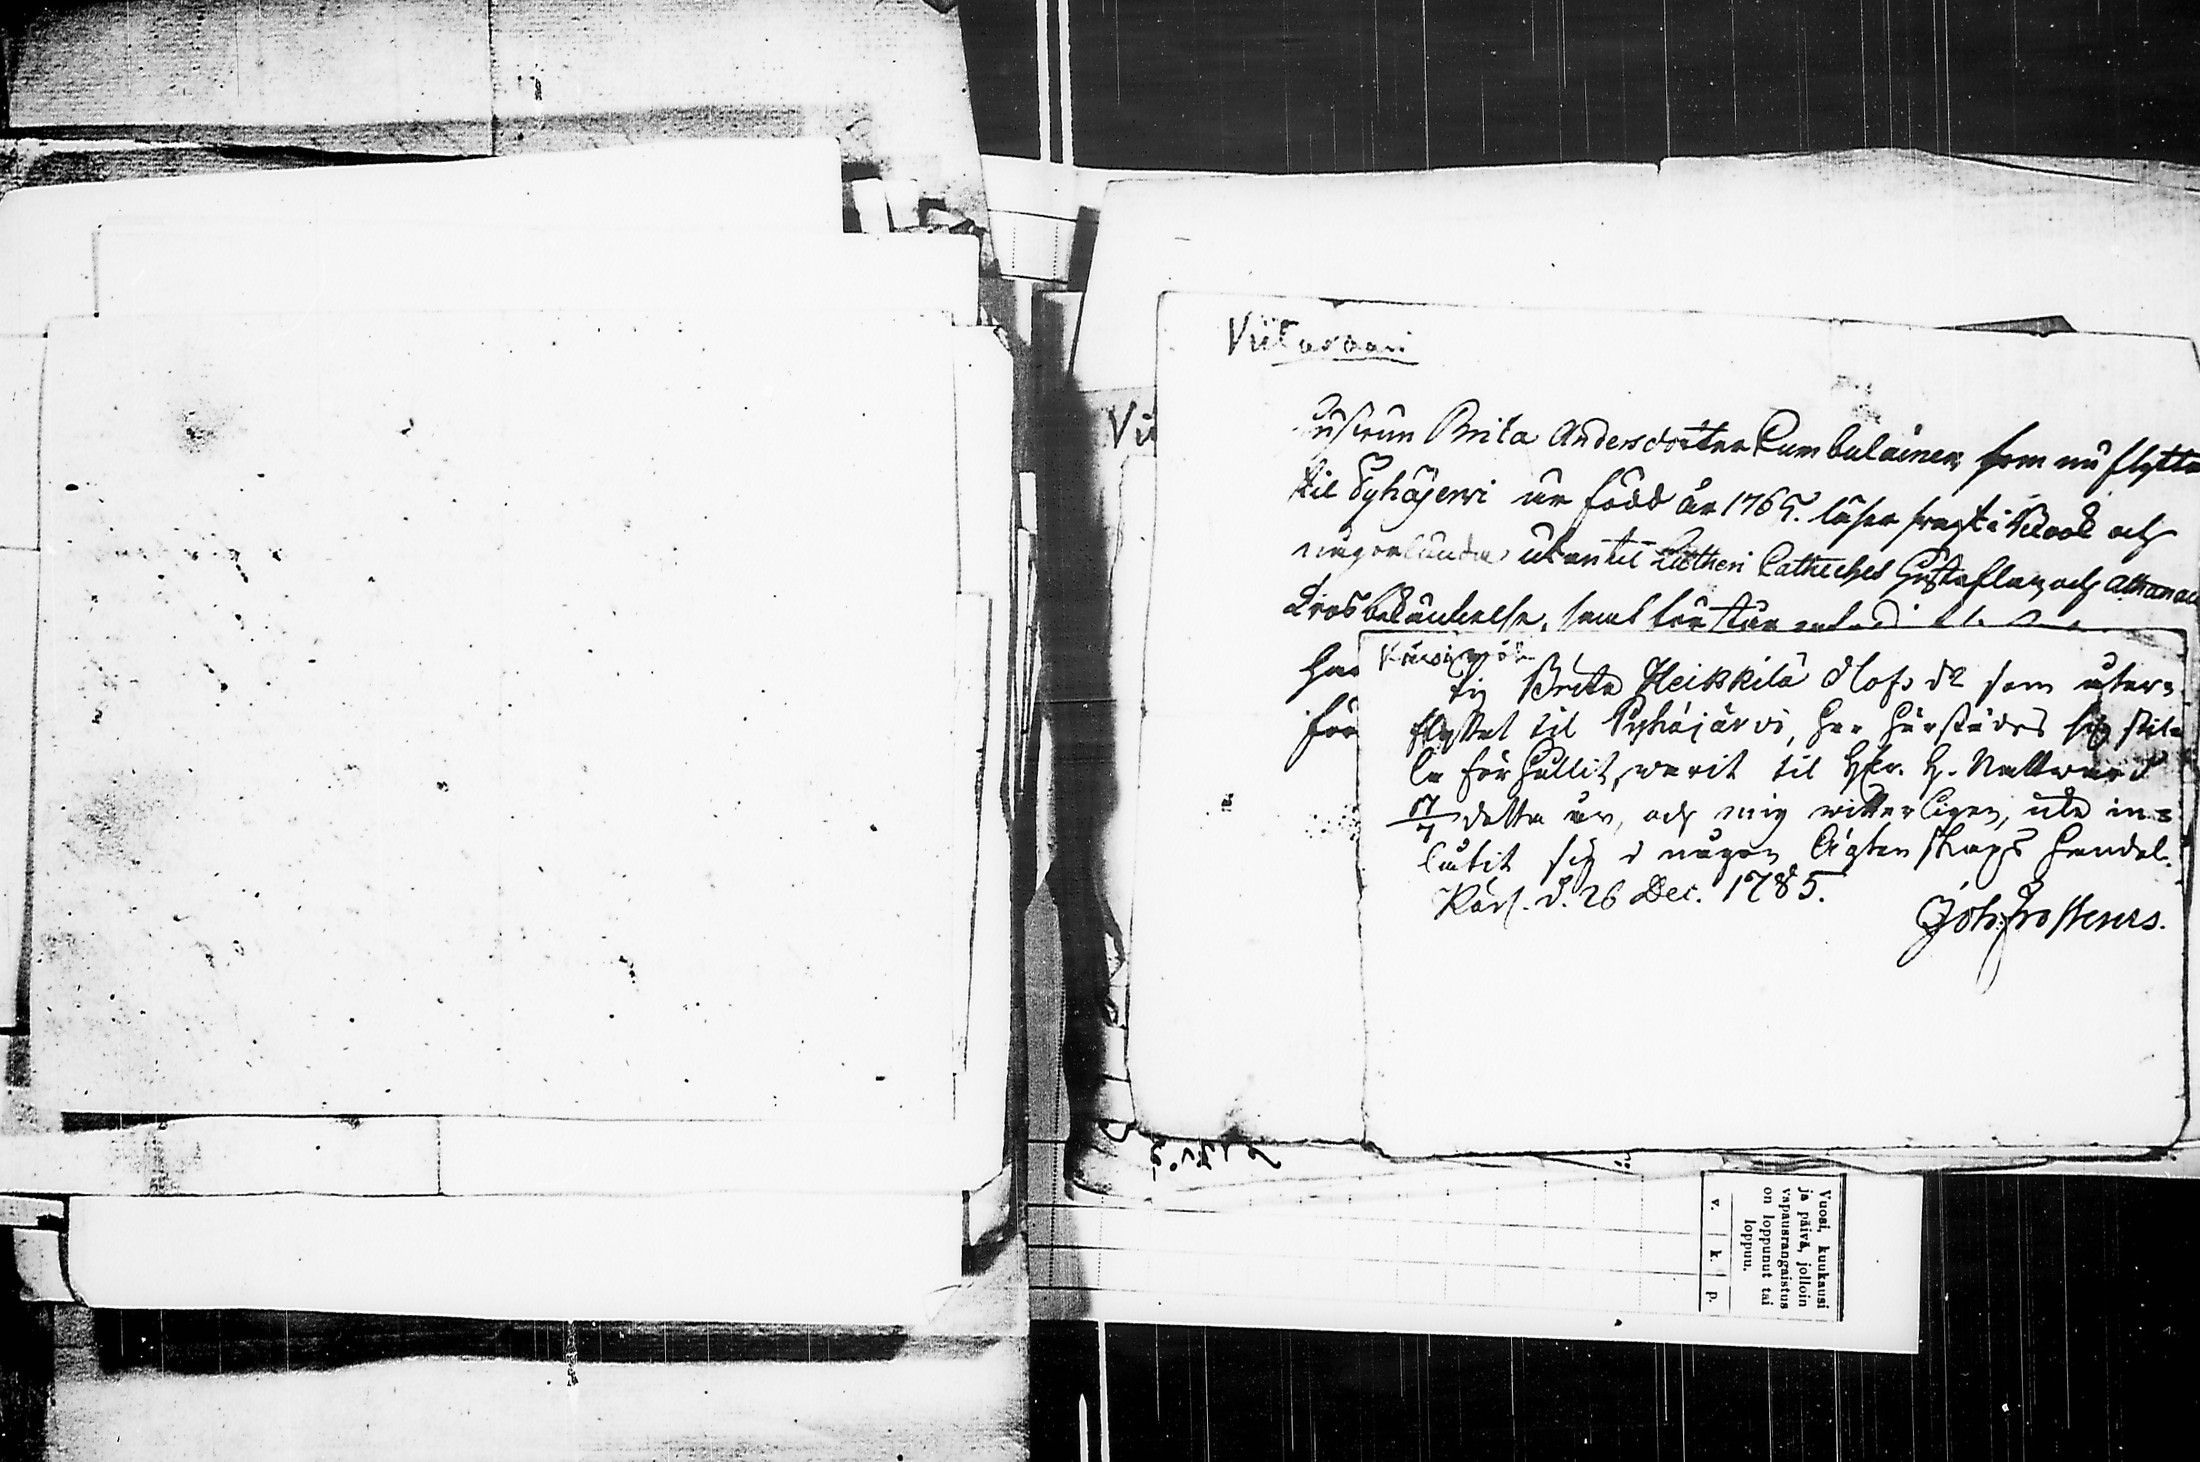 Viitasaari
Vii
Hustrun Brita Andersdotter Kumbulainen som nu flytta
til Pyhäjerwi är född år 1765. läser swagt i Book och
någorlunda utantil Lutheri Catheches Hustaflan och Athanasii
Trosbekännelse, samt förstår
har
för
Kärsämäki
Pig. Brita Heikkilä Olofs dr som åter-
flyttat til Pyhäjärvi, har härstädes sig stil-
la förhållit, warit til Hrr. H. Nattward
17/7 detta år, och mig witterligen, icke in-
låtit sig i någon Ägtenskaps handel.
Kärs. d. 26 Dec. 1785.
Joh. Frosterus.
Vuosi, kuukausi
ja päivä, jolloin
vapausrangaistus
on loppunut tai
loppuu.
v. k. p.